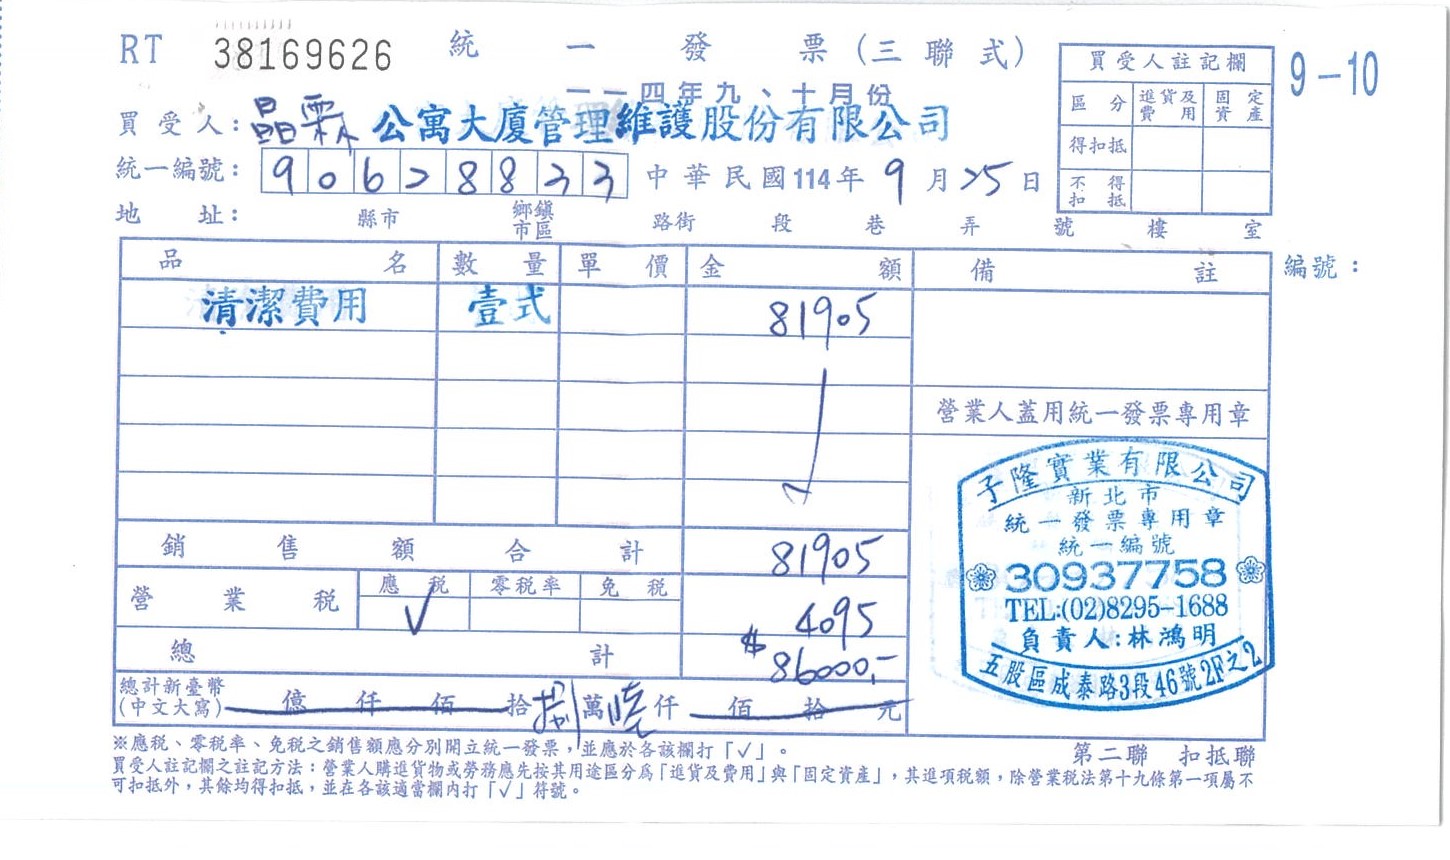 RT 38169626 統一發票(三聯式) 9-10
一一四年九、十月份
買受人註記欄
區分 進貨及費用 固定資產
得扣抵
不得扣抵
買受人:晶霖公寓大廈管理維護股份有限公司
統一編號:90628833 中華民國114年9月25日
地址: 縣市 鄉鎮市區 路街 段 巷 弄 號 樓 室
品名 數量 單價 金額 備註 編號:
清潔費用 壹式 81905
營業人蓋用統一發票專用章
子隆實業有限公司
新北市
統一發票專用章
統一編號
30937758
TEL:(02)8295-1688
負責人:林鴻明
五股區成泰路3段46號2F之2
銷售額合計 81905
營業稅 應稅 零稅率 免稅
✓ 4095
總計 $86000,-
總計新臺幣(中文大寫) 億仟佰拾捌萬陸仟佰拾元
※應稅、零稅率、免稅之銷售額應分別開立統一發票,並應於各該欄打「✓」。
第二聯 扣抵聯
買受人註記欄之註記方法:營業人購進貨物或勞務應先按其用途區分為「進貨及費用」與「固定資產」,其進項稅額,除營業稅法第十九條第一項屬不
可扣抵外,其餘均得扣抵,並在各該適當欄內打「✓」符號。